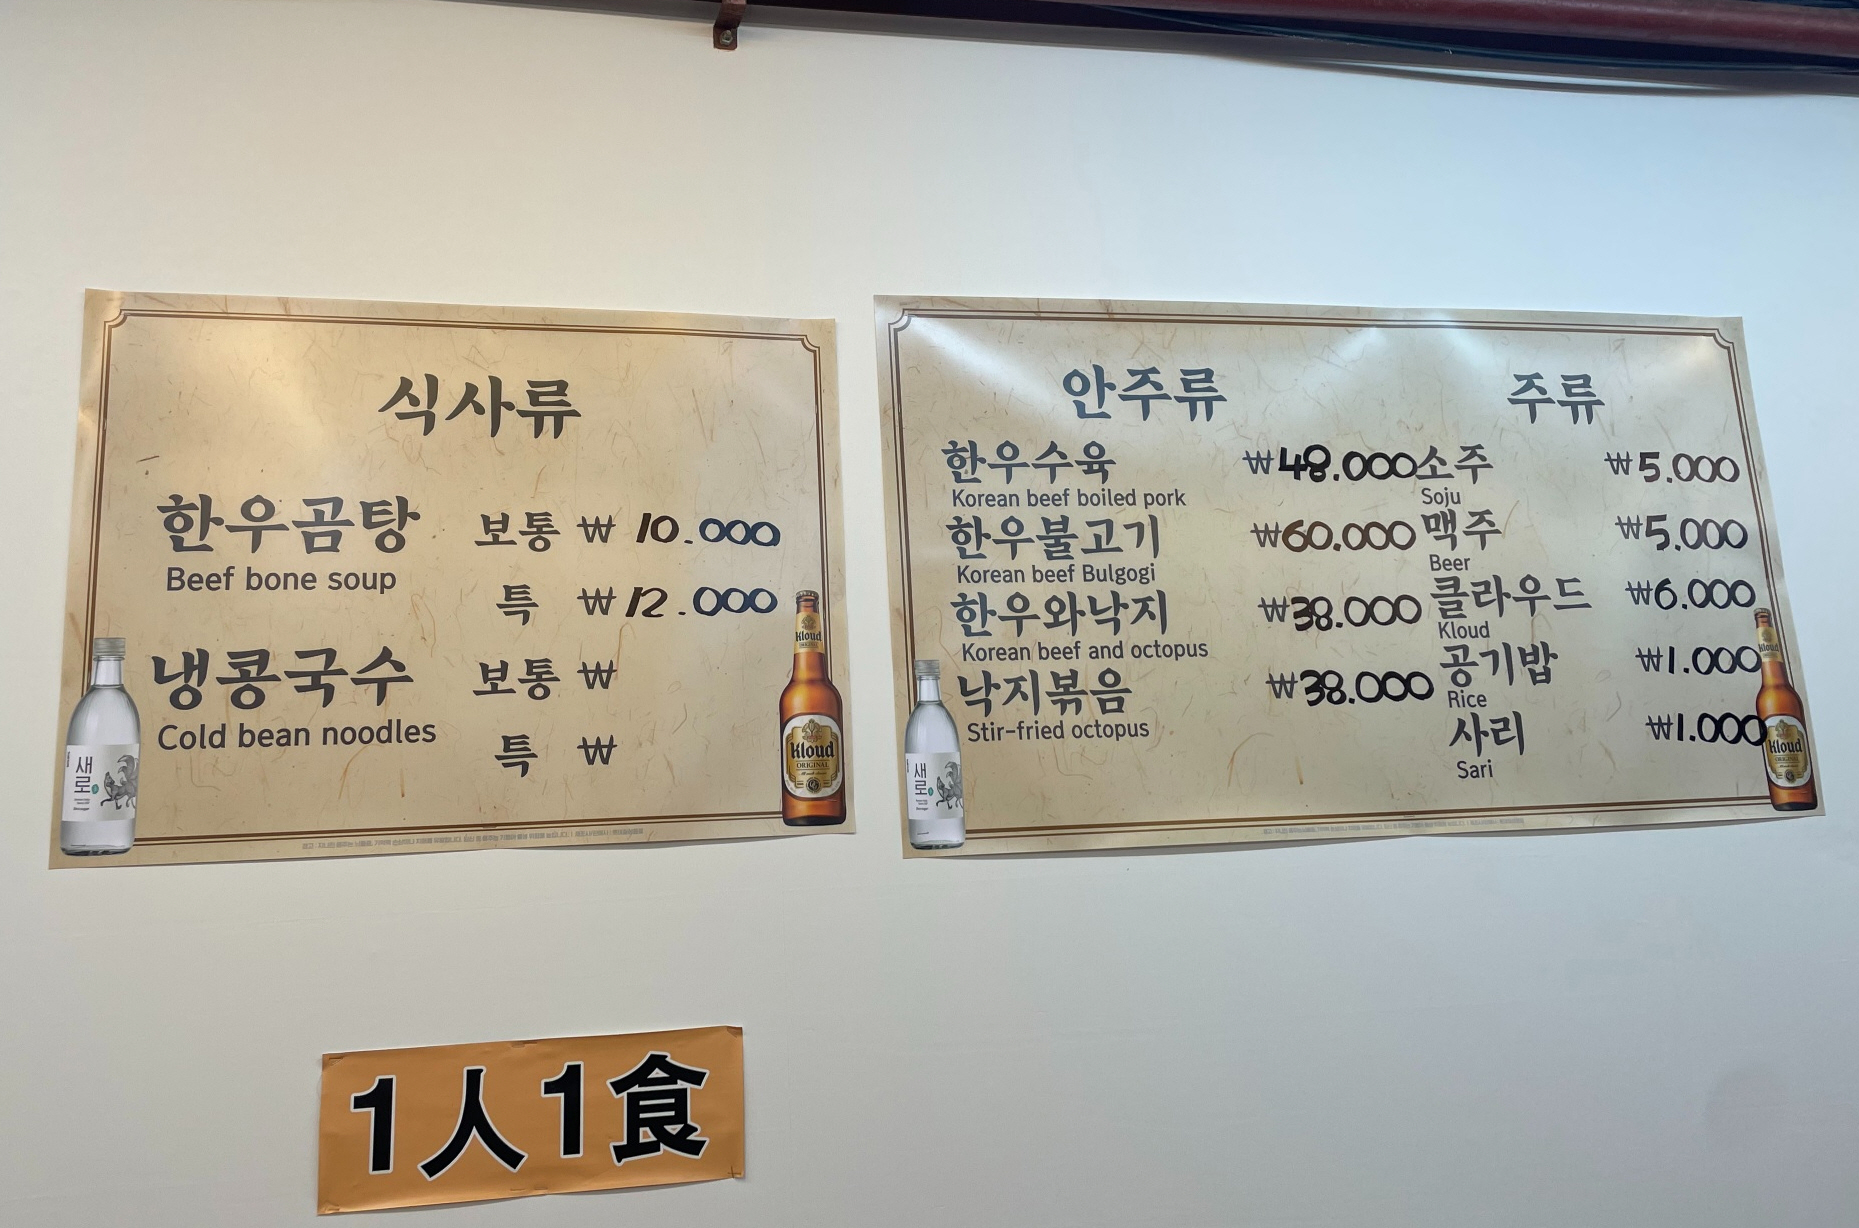 식사류
한우곰탕 보통 ₩ 10.000
Beef bone soup
특 ₩ 12.000
냉콩국수 보통 ₩
Cold bean noodles
특 ₩
새로
Kloud
Kloud
ORIGINAL
안주류
한우수육 ₩48.000
Korean beef boiled pork
한우불고기 ₩60.000
Korean beef Bulgogi
한우와낙지 ₩38.000
Korean beef and octopus
낙지볶음 ₩38.000
Stir-fried octopus
주류
소주 ₩5.000
Soju
맥주 ₩5.000
Beer
클라우드 ₩6.000
Kloud
공기밥 ₩1.000
Rice
사리 ₩1.000
Sari
새로
Kloud
ORIGINAL
1人1食